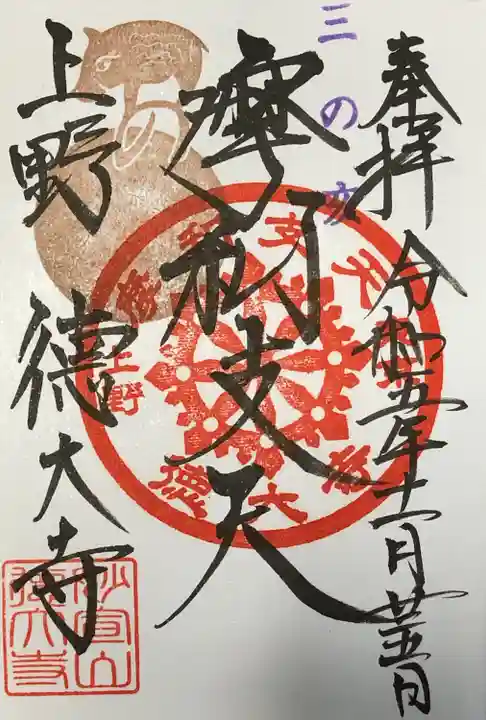 奉拝 令和五年十一月廿五日
三の亥
摩利支天
上野 徳大寺
摩利支天
上野
德大寺
妙宣山
徳大寺